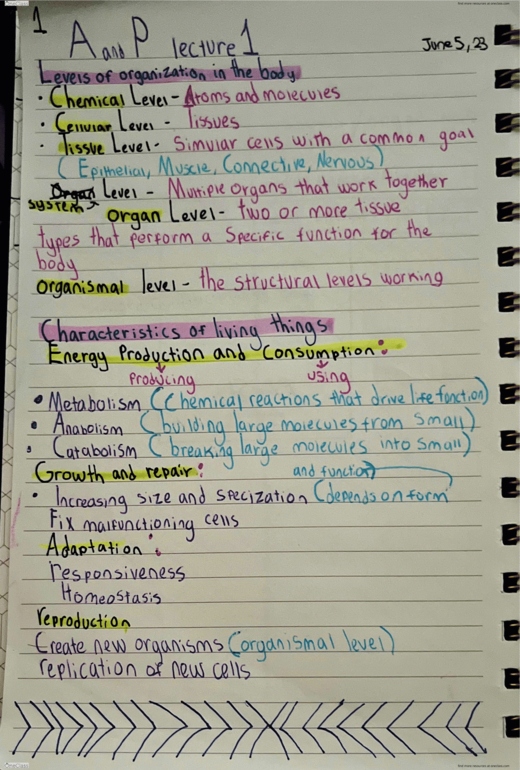 1
A and P lecture 1
June 5, 23
Levels of organization in the body
• Chemical Level - Atoms and molecules
• Cellular Level - Tissues
• Tissue Level - Simular cells with a common goal
(Epithelial, Muscle, Connective, Nervous)
Organ Level - Multiple organs that work together
system
Organ Level - two or more tissue
types that perform a specific function for the
body
organismal level - the structural levels working
Characteristics of living things
Energy Production and Consumption:
Producing using
• Metabolism (Chemical reactions that drive life function)
• Anabolism (building large molecules from small)
• Catabolism (breaking large molecules into small)
Growth and repair: and function)
• Increasing size and specization (depends on form
Fix malfunctioning cells
Adaptation:
responsiveness
Homeostasis
reproduction
Create new organisms (organismal level)
replication of new cells